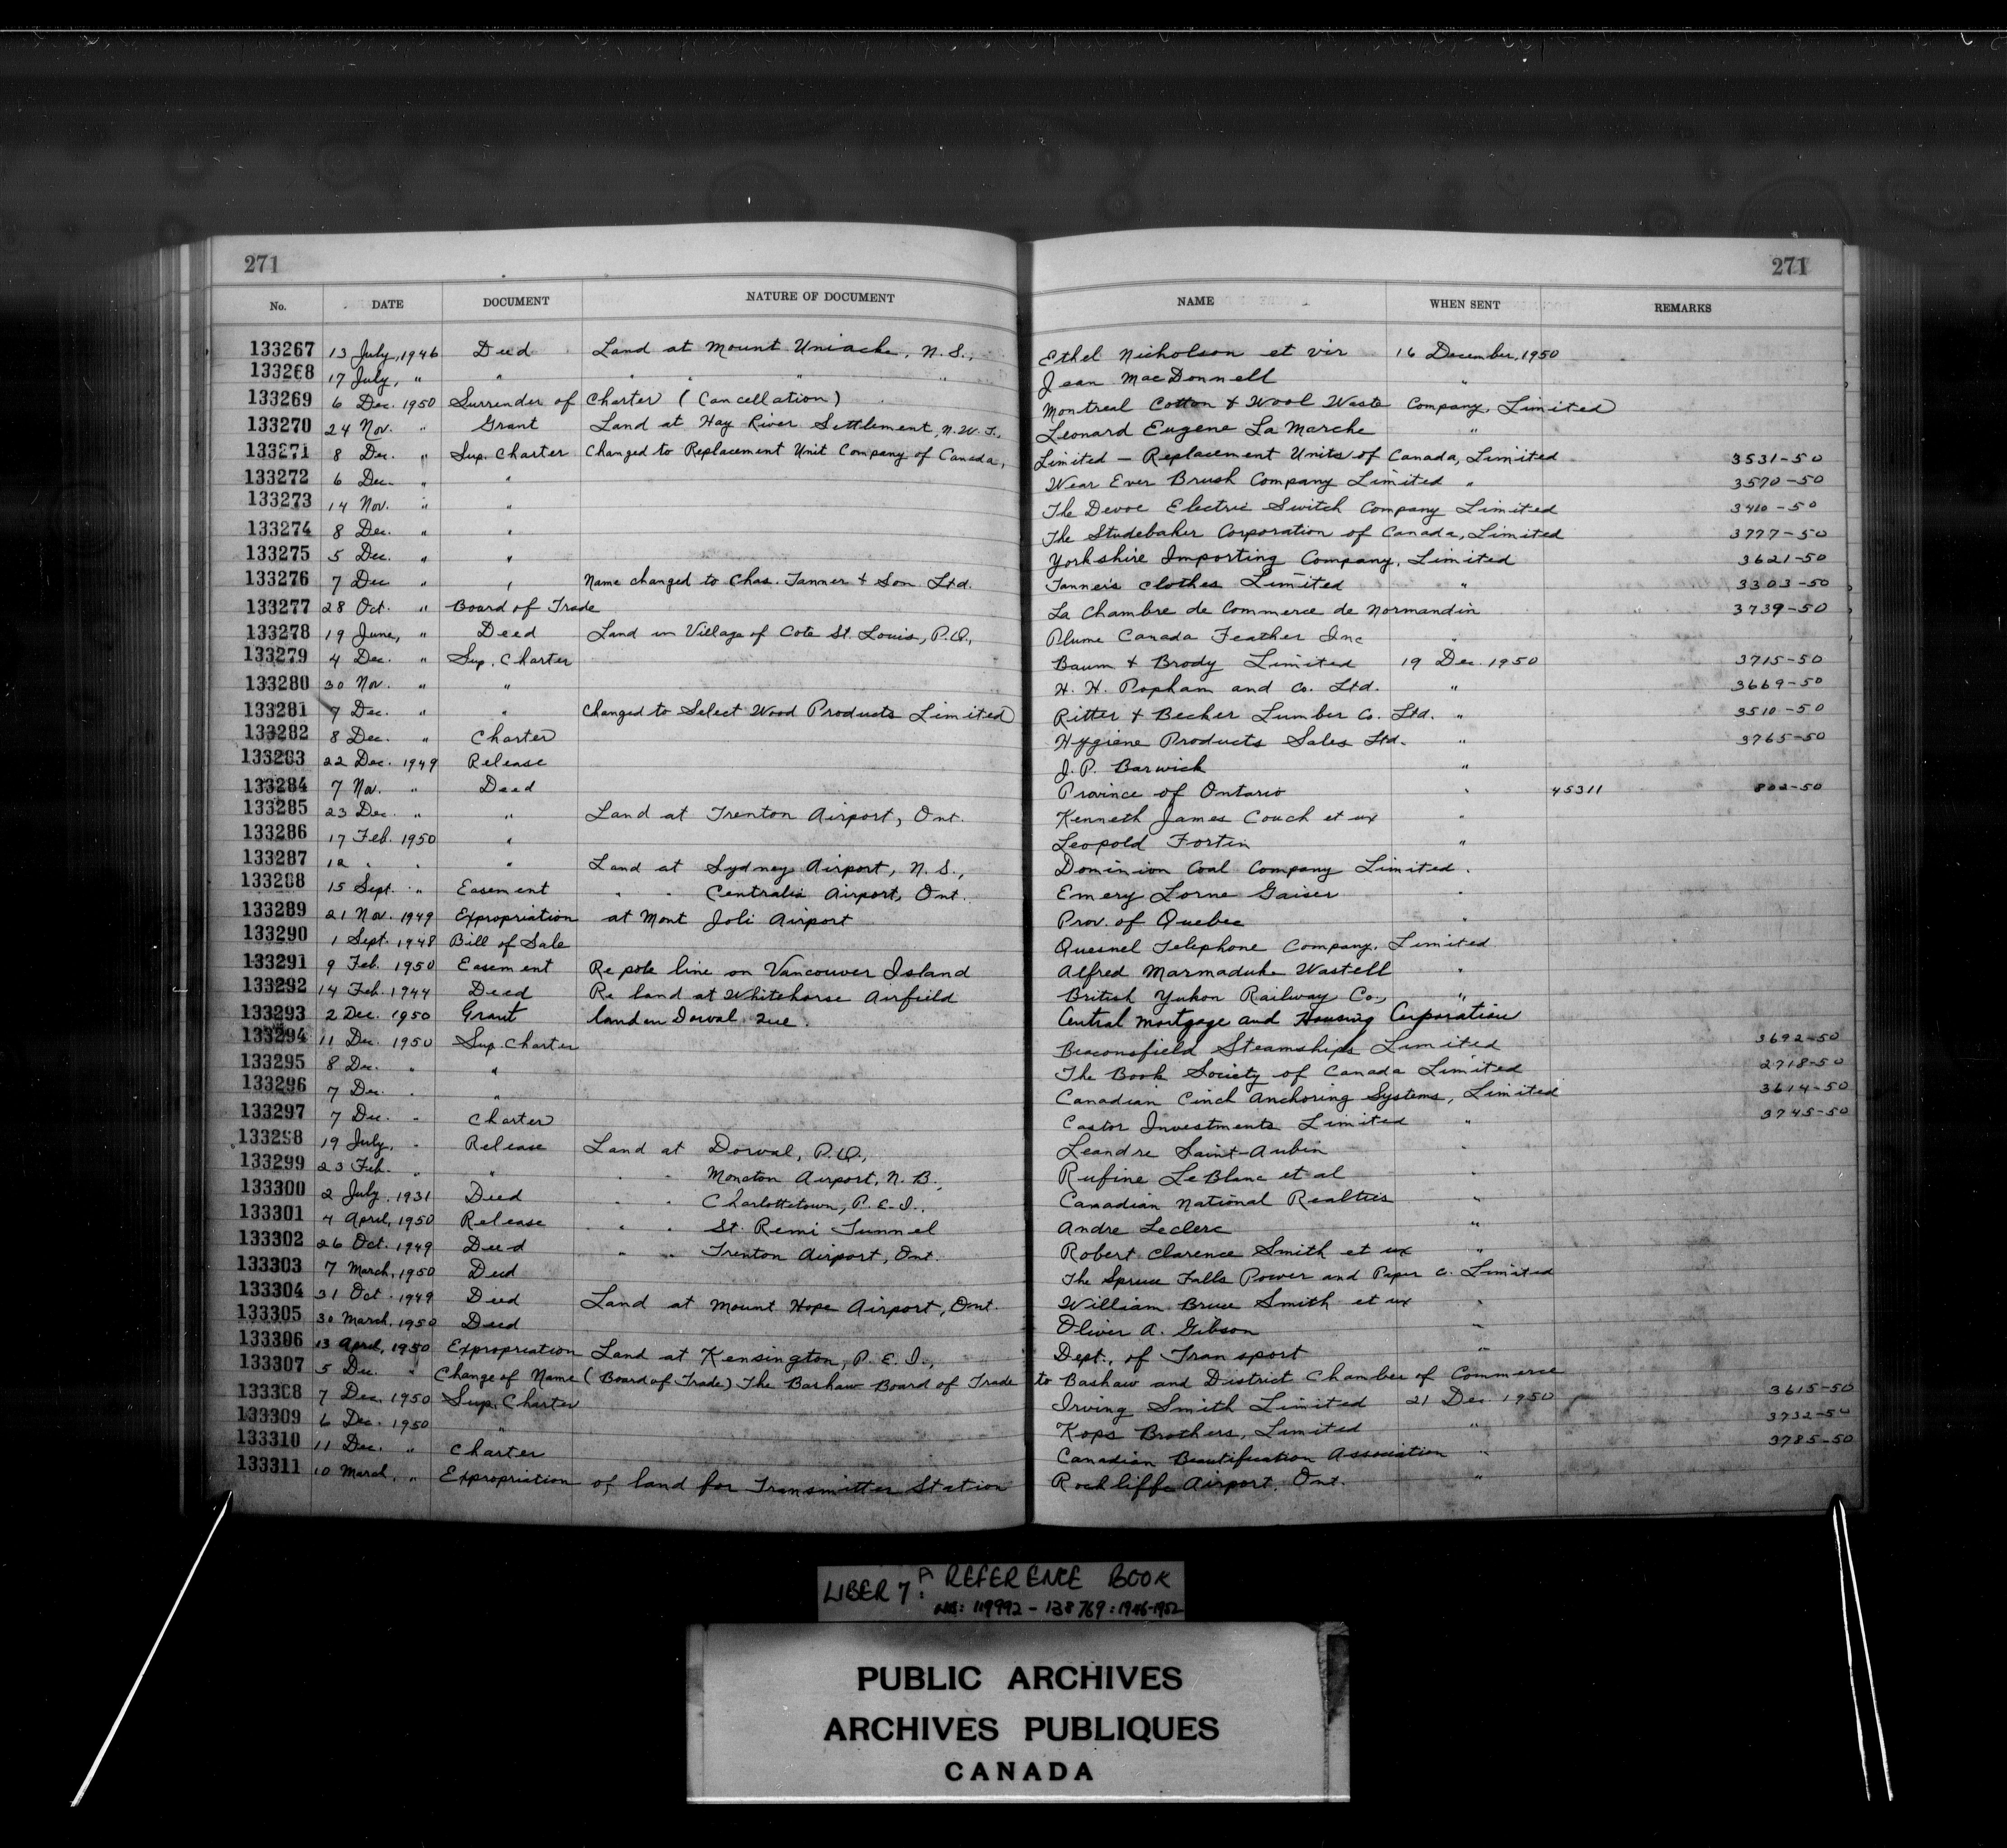 271 271
No. DATE DOCUMENT NATURE OF DOCUMENT NAME WHEN SENT REMARKS
133267 13 July, 1946 Deed Land at Mount Uniacke, N.S., Ethel Nicholson et vir 16 December, 1950
133268 17 July, " " " " " " Jean MacDonnell "
133269 6 Dec. 1950 Surrender of Charter (Cancellation) Montreal Cotton & Wool Waste Company, Limited
133270 24 Nov. " Grant Land at Hay River Settlement, N.W.T., Leonard Eugene La Marche "
133271 8 Dec. " Sup. Charter Changed to Replacement Unit Company of Canada, Limited — Replacement Units of Canada, Limited 3531-50
133272 6 Dec. " " Wear Ever Brush Company Limited " 3570-50
133273 14 Nov. " " The Devoe Electric Switch Company Limited 3410-50
133274 8 Dec. " " The Studebaker Corporation of Canada, Limited 3777-50
133275 5 Dec. " " Yorkshire Importing Company, Limited 3621-50
133276 7 Dec " " Name changed to Chas. Tanner & Son Ltd. Tanner's Clothes Limited " 3303-50
133277 28 Oct. " Board of Trade La Chambre de Commerce de Normandin 3739-50
133278 19 June, " Deed Land in Village of Cote St. Louis, P.Q., Plume Canada Feather Inc "
133279 4 Dec. " Sup. Charter Baum & Brody Limited 19 Dec. 1950 3715-50
133280 30 Nov. " " H. H. Popham and Co. Ltd. " 3669-50
133281 7 Dec. " " Changed to Select Wood Products Limited Ritter & Becker Lumber Co. Ltd. " 3510-50
133282 8 Dec. " Charter Hygiene Products Sales Ltd. " 3765-50
133283 22 Dec. 1949 Release J. P. Barwick "
133284 7 Nov. " Deed Province of Ontario " 45311 802-50
133285 23 Dec. " " Land at Trenton Airport, Ont. Kenneth James Couch et ux "
133286 17 Feb. 1950 " Leopold Fortin "
133287 12 " " " Land at Sydney Airport, N.S., Dominion Coal Company Limited "
133288 15 Sept. " Easement " " Centralia Airport, Ont. Emery Lorne Gaiser "
133289 21 Nov. 1949 Expropriation at Mont Joli Airport Prov. of Quebec "
133290 1 Sept. 1948 Bill of Sale Quesnel Telephone Company, Limited
133291 9 Feb. 1950 Easement Re pole line on Vancouver Island Alfred Marmaduke Wastell "
133292 14 Feb. 1944 Deed Re land at Whitehorse Airfield British Yukon Railway Co., "
133293 2 Dec. 1950 Grant land in Dorval Que. Central Mortgage and Housing Corporation
133294 11 Dec. 1950 Sup. Charter Beaconsfield Steamships Limited 3692-50
133295 8 Dec. " " The Book Society of Canada Limited 2718-50
133296 7 Dec. " " Canadian Cinch Anchoring Systems, Limited 3614-50
133297 7 Dec. " Charter Castor Investments Limited " 3745-50
133298 19 July, " Release Land at Dorval, P.Q., Leandre Saint-Aubin "
133299 23 Feb. " " " " Moncton Airport, N.B., Rufine LeBlanc et al "
133300 2 July, 1931 Deed " " Charlottetown, P.E.I., Canadian National Realties "
133301 4 April, 1950 Release " " St. Remi Tunnel Andre Leclerc "
133302 26 Oct. 1949 Deed " " Trenton Airport, Ont. Robert Clarence Smith et ux "
133303 7 March, 1950 Deed The Spruce Falls Power and Paper Co. Limited
133304 31 Oct. 1949 Deed Land at Mount Hope Airport, Ont. William Bruce Smith et ux "
133305 30 March, 1950 Deed Oliver A. Gibson "
133306 13 April, 1950 Expropriation Land at Kensington, P.E.I., Dept., of Transport "
133307 5 Dec. " Change of Name (Board of Trade) The Bashaw Board of Trade to Bashaw and District Chamber of Commerce
133308 7 Dec. 1950 Sup. Charter Irving Smith Limited 21 Dec. 1950 3615-50
133309 6 Dec. 1950 " Kops Brothers, Limited " 3732-50
133310 11 Dec. " Charter Canadian Beautification Association " 3785-50
133311 10 March, " Expropriation of land for Transmitter Station Rockliffe Airport, Ont. "
LIBER 7A: REFERENCE BOOK
NOS: 119992 - 138769 : 1946-1952
PUBLIC ARCHIVES
ARCHIVES PUBLIQUES
CANADA